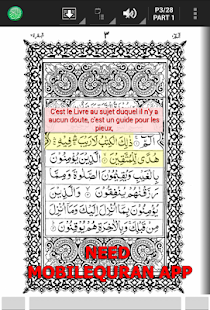 P3/28
PART 1
٣
C'est le Livre au sujet duquel il n'y a
aucun doute, c'est un guide pour les
pieux,
الٓمّٓ ذٰلِكَ الْكِتٰبُ لَا رَيْبَ فِيْهِ
هُدًى لِّلْمُتَّقِيْنَ الَّذِيْنَ يُؤْمِنُوْنَ
بِالْغَيْبِ وَيُقِيْمُوْنَ الصَّلٰوةَ وَمِمَّا
رَزَقْنٰهُمْ يُنْفِقُوْنَ وَالَّذِيْنَ
يُؤْمِنُوْنَ بِمَآ اُنْزِلَ اِلَيْكَ وَمَآ اُنْزِلَ
مِنْ قَبْلِكَ وَبِالْاٰخِرَةِ هُمْ يُوْقِنُوْنَ
NEED
MOBILEQURAN APP